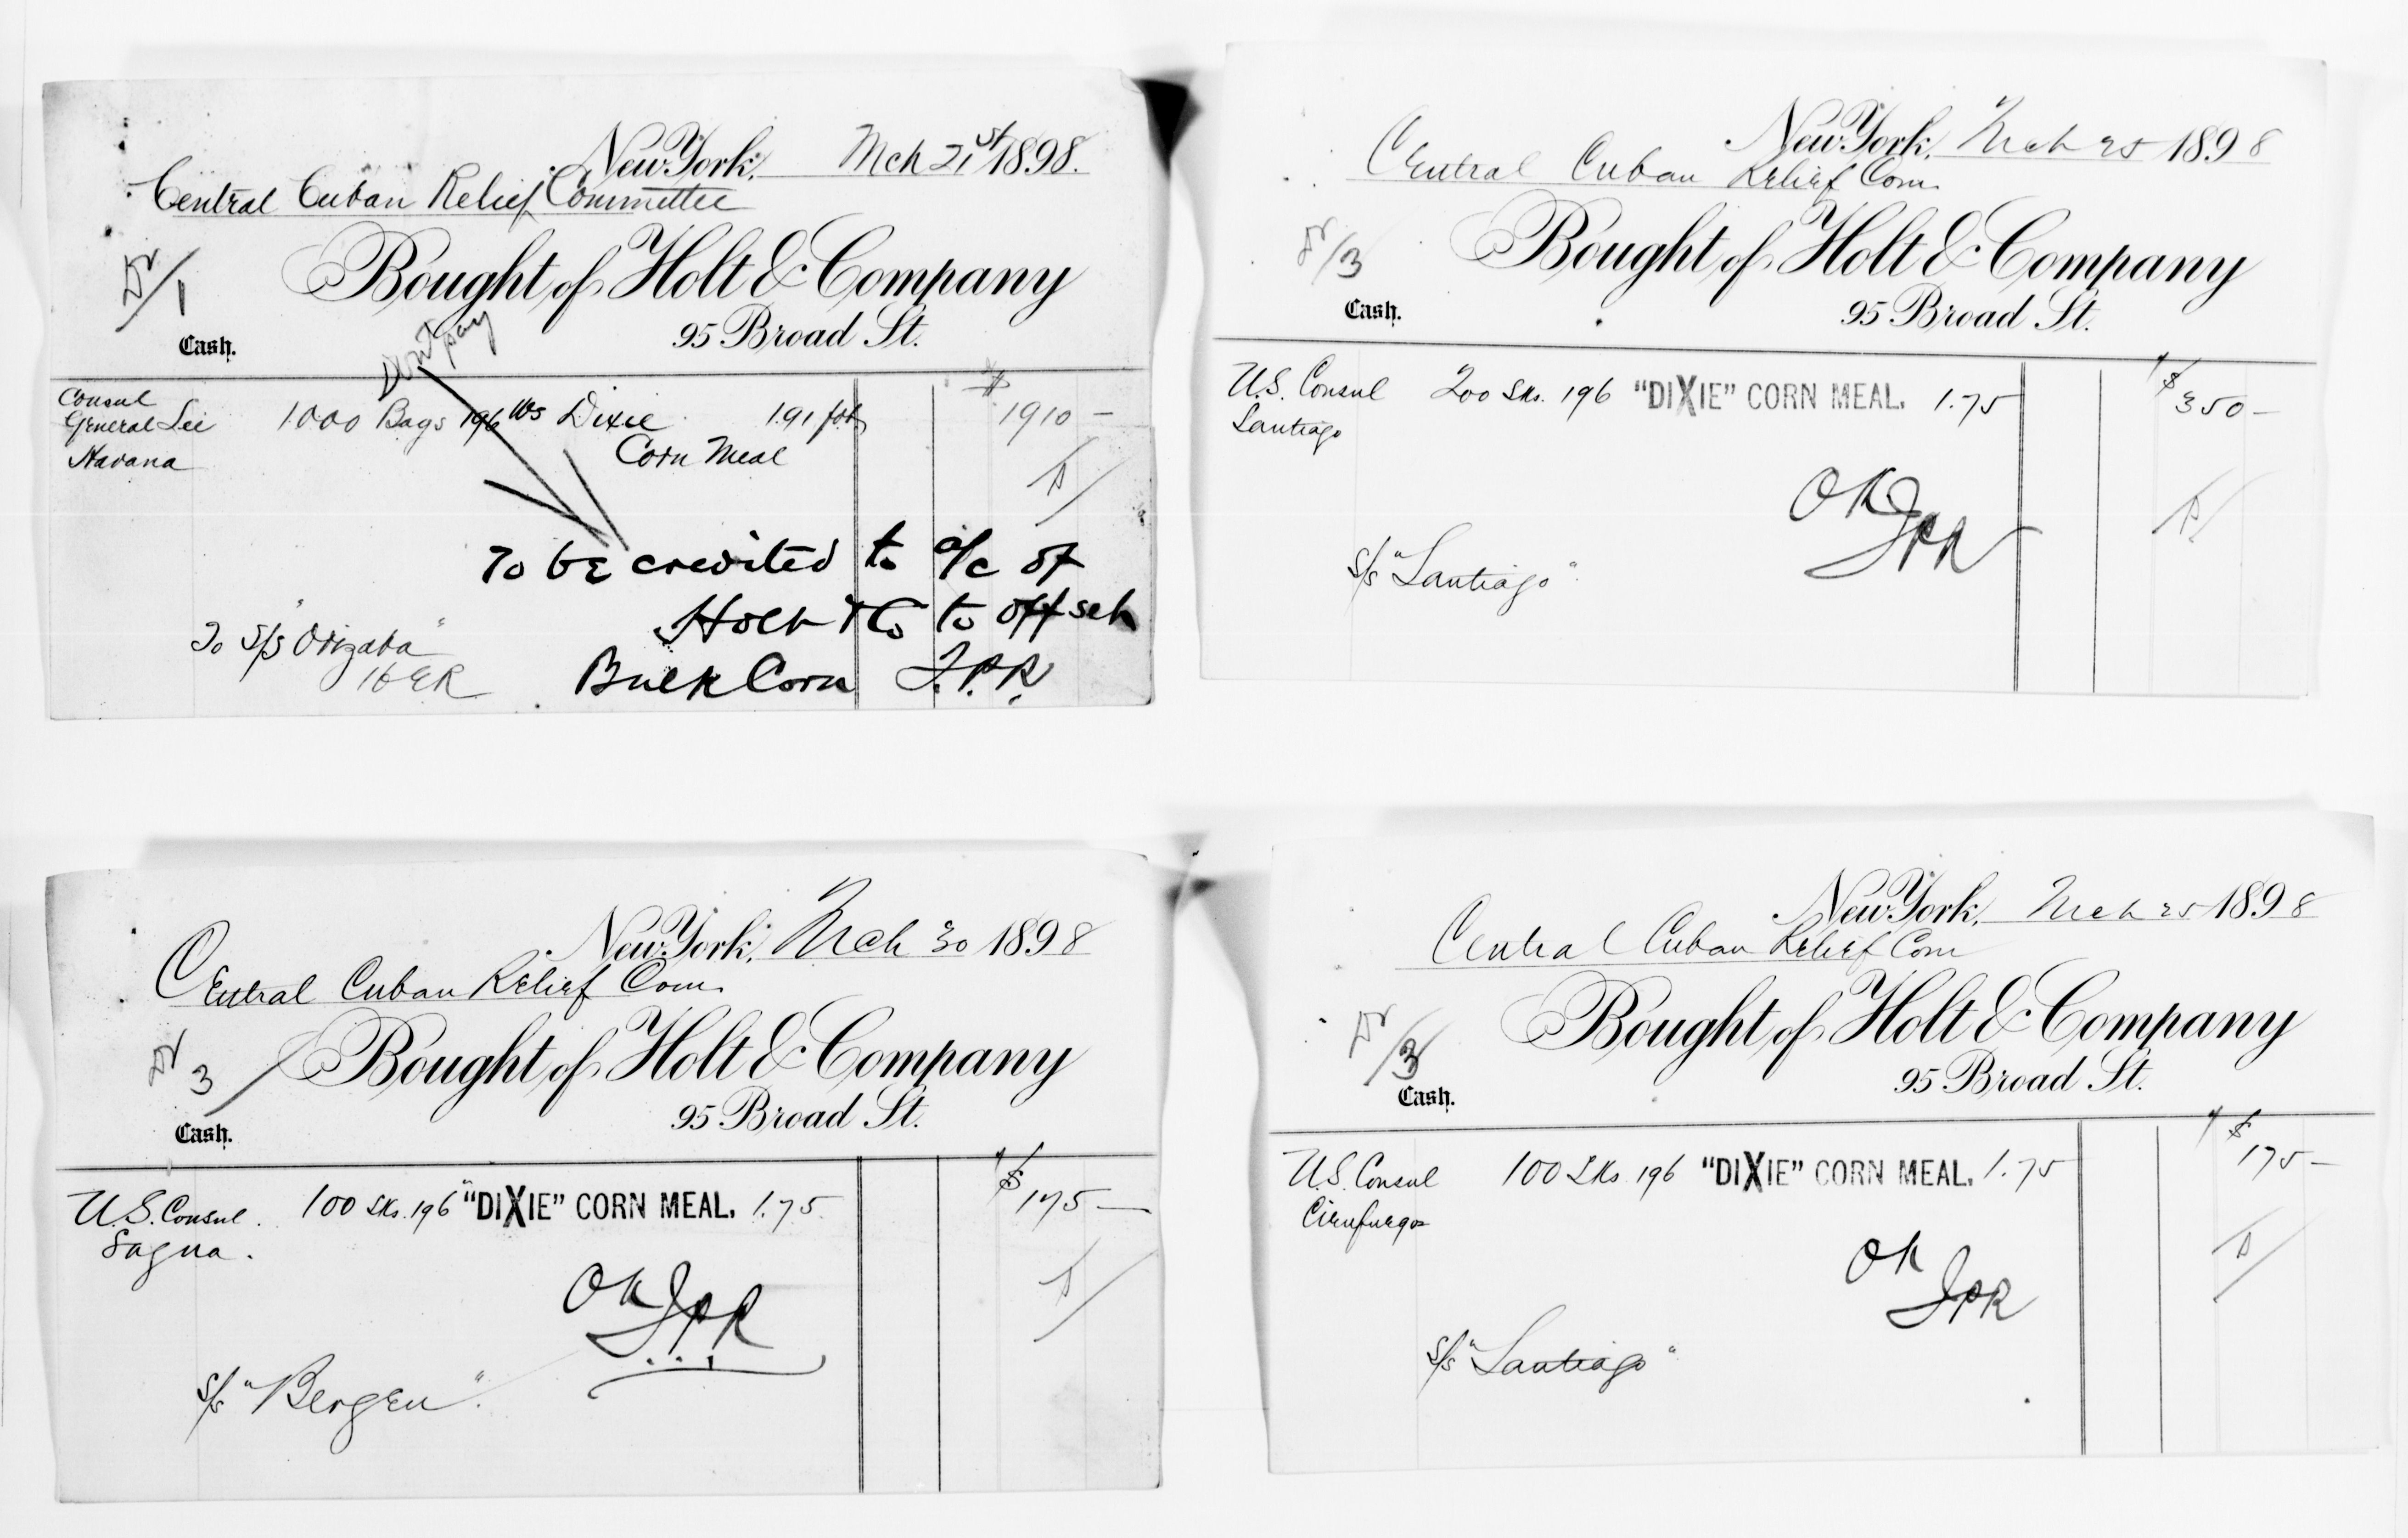 New York, Mch 21st 1898.
Central Cuban Relief Committee
Dr/1
Bought of Holt & Company
Cash.
95 Broad St.
Don't pay
$
Consul
General Lee
Havana
1000 Bags 196 lbs Dixie 1.91 fob 1910 -
Corn Meal
To be credited to a/c of
Holt & Co to offset
Bulk Corn J.P.R.
To S/S "Orizaba"
New York, Mch 25 1898
Central Cuban Relief Com.
Dr/3
Bought of Holt & Company
Cash.
95 Broad St.
$
U.S. Consul 200 Sks. 196 "DIXIE" CORN MEAL. 1.75 350 -
Santiago
OK
JPR
S/S "Santiago"
New York, Mch 30 1898
Central Cuban Relief Com.
Dr 3/
Bought of Holt & Company
Cash.
95 Broad St.
$
U.S. Consul. 100 Sks. 196 "DIXIE" CORN MEAL. 1.75 175 -
Sagua.
OK JPR
S/S "Bergen".
New York, Mch 25 1898
Central Cuban Relief Com
Dr/3
Bought of Holt & Company
Cash.
95 Broad St.
$
U.S. Consul 100 Sks 196 "DIXIE" CORN MEAL. 1.75 175 -
Cienfuegos
OK
JPR
S/S "Santiago"